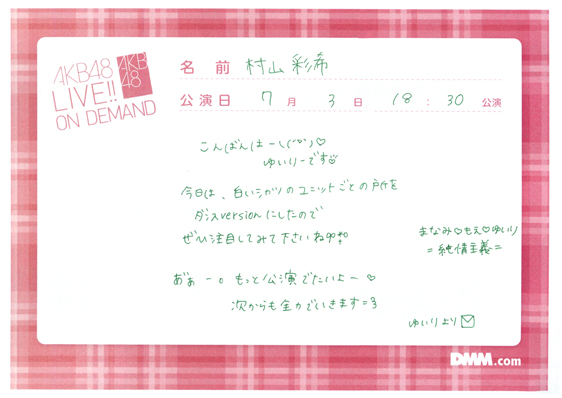 AKB48
LIVE!!
ON DEMAND
AKB
48
名前 村山彩希
公演日 7月3日 18:30 公演
こんばんはー\(^o^)♡
ゆいりーです
今日は、白いシャツのユニットごとの所を
ダンスversionにしたので
ぜひ注目してみて下さいね
まなみ♡もえ♡ゆいり
=純情主義=
あ゛ぁー。もっと公演でたいよー♡
次からも全力でいきます=3
ゆいりより
DMM.com